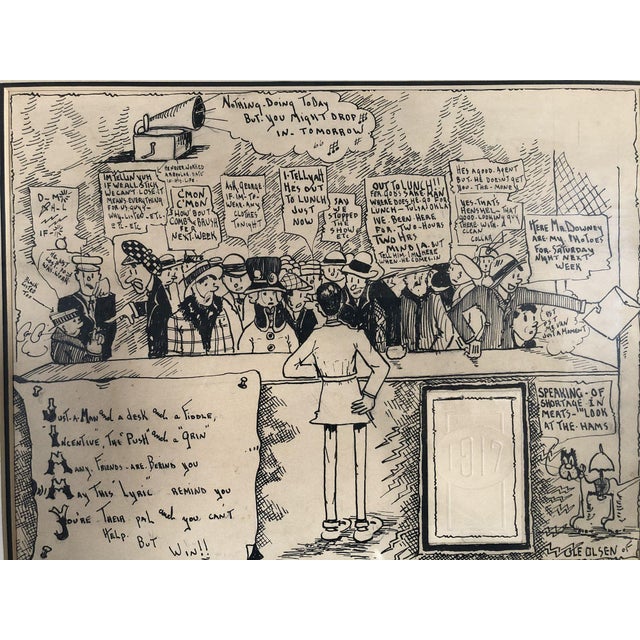 NOTHING-DOING TODAY
BUT. YOU MIGHT DROP
IN. TOMORROW
I'M TELLIN YUH
IF WE ALL STICK
WE CAN'T LOSE. IT
MEANS EVERYTHING
FOR US GUYS
WAY. LISTED. ETC.
ETC. ETC
C'MON
C'MON
HOW 'BOUT
COMB and BRUSH
FER
NEXT. WEEK
ASK GEORGE
IF I'M. TO
WEAR. ANY
CLOTHES
TONIGHT
I-TELLYAH
HES OUT
TO LUNCH
JUST
NOW
SAY
WE
STOPPED
THE
SHOW
ETC
OUT TO LUNCH!!
FER GOBS SAKE. MAN
WHERE DOES HE GO FOR
LUNCH - TULSA. OKLA
WE BEEN HERE
FOR. TWO-HOURS
TWO HRS
MIND YA. BUT
TELL HIM I'M HERE
WHEN HE COMES IN
HES A GOOD. AGENT
BUT. HE DOESN'T GET
YOU. THE-MONEY
YES. THAT'S
HENSHEL. THAT
GOOD LOOKING GUY
THERE. WITH. A
CLEAN
COLLAR
HERE MR. DOWNEY
ARE MY PHOTOES
FOR SATURDAY
NIGHT NEXT
WEEK
JUST A MOMENT
JUST-A-MAN and A DESK and A FIDDLE,
INCENTIVE, THE "PUSH" and A "GRIN"
MANY. FRIENDS-ARE. BEHIND YOU
MAY THIS "LYRIC" REMIND YOU
YOU'RE THEIR PAL and YOU CAN'T
HELP. BUT WIN!!
1917
SPEAKING-OF
SHORTAGE IN
MEATS-"LOOK
AT THE-HAMS
OLE OLSEN